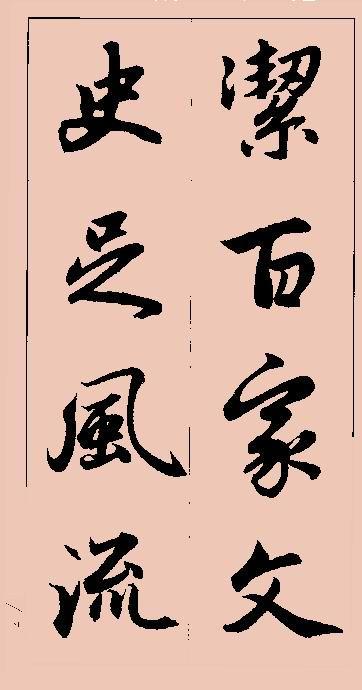 潔百家文
史足風流